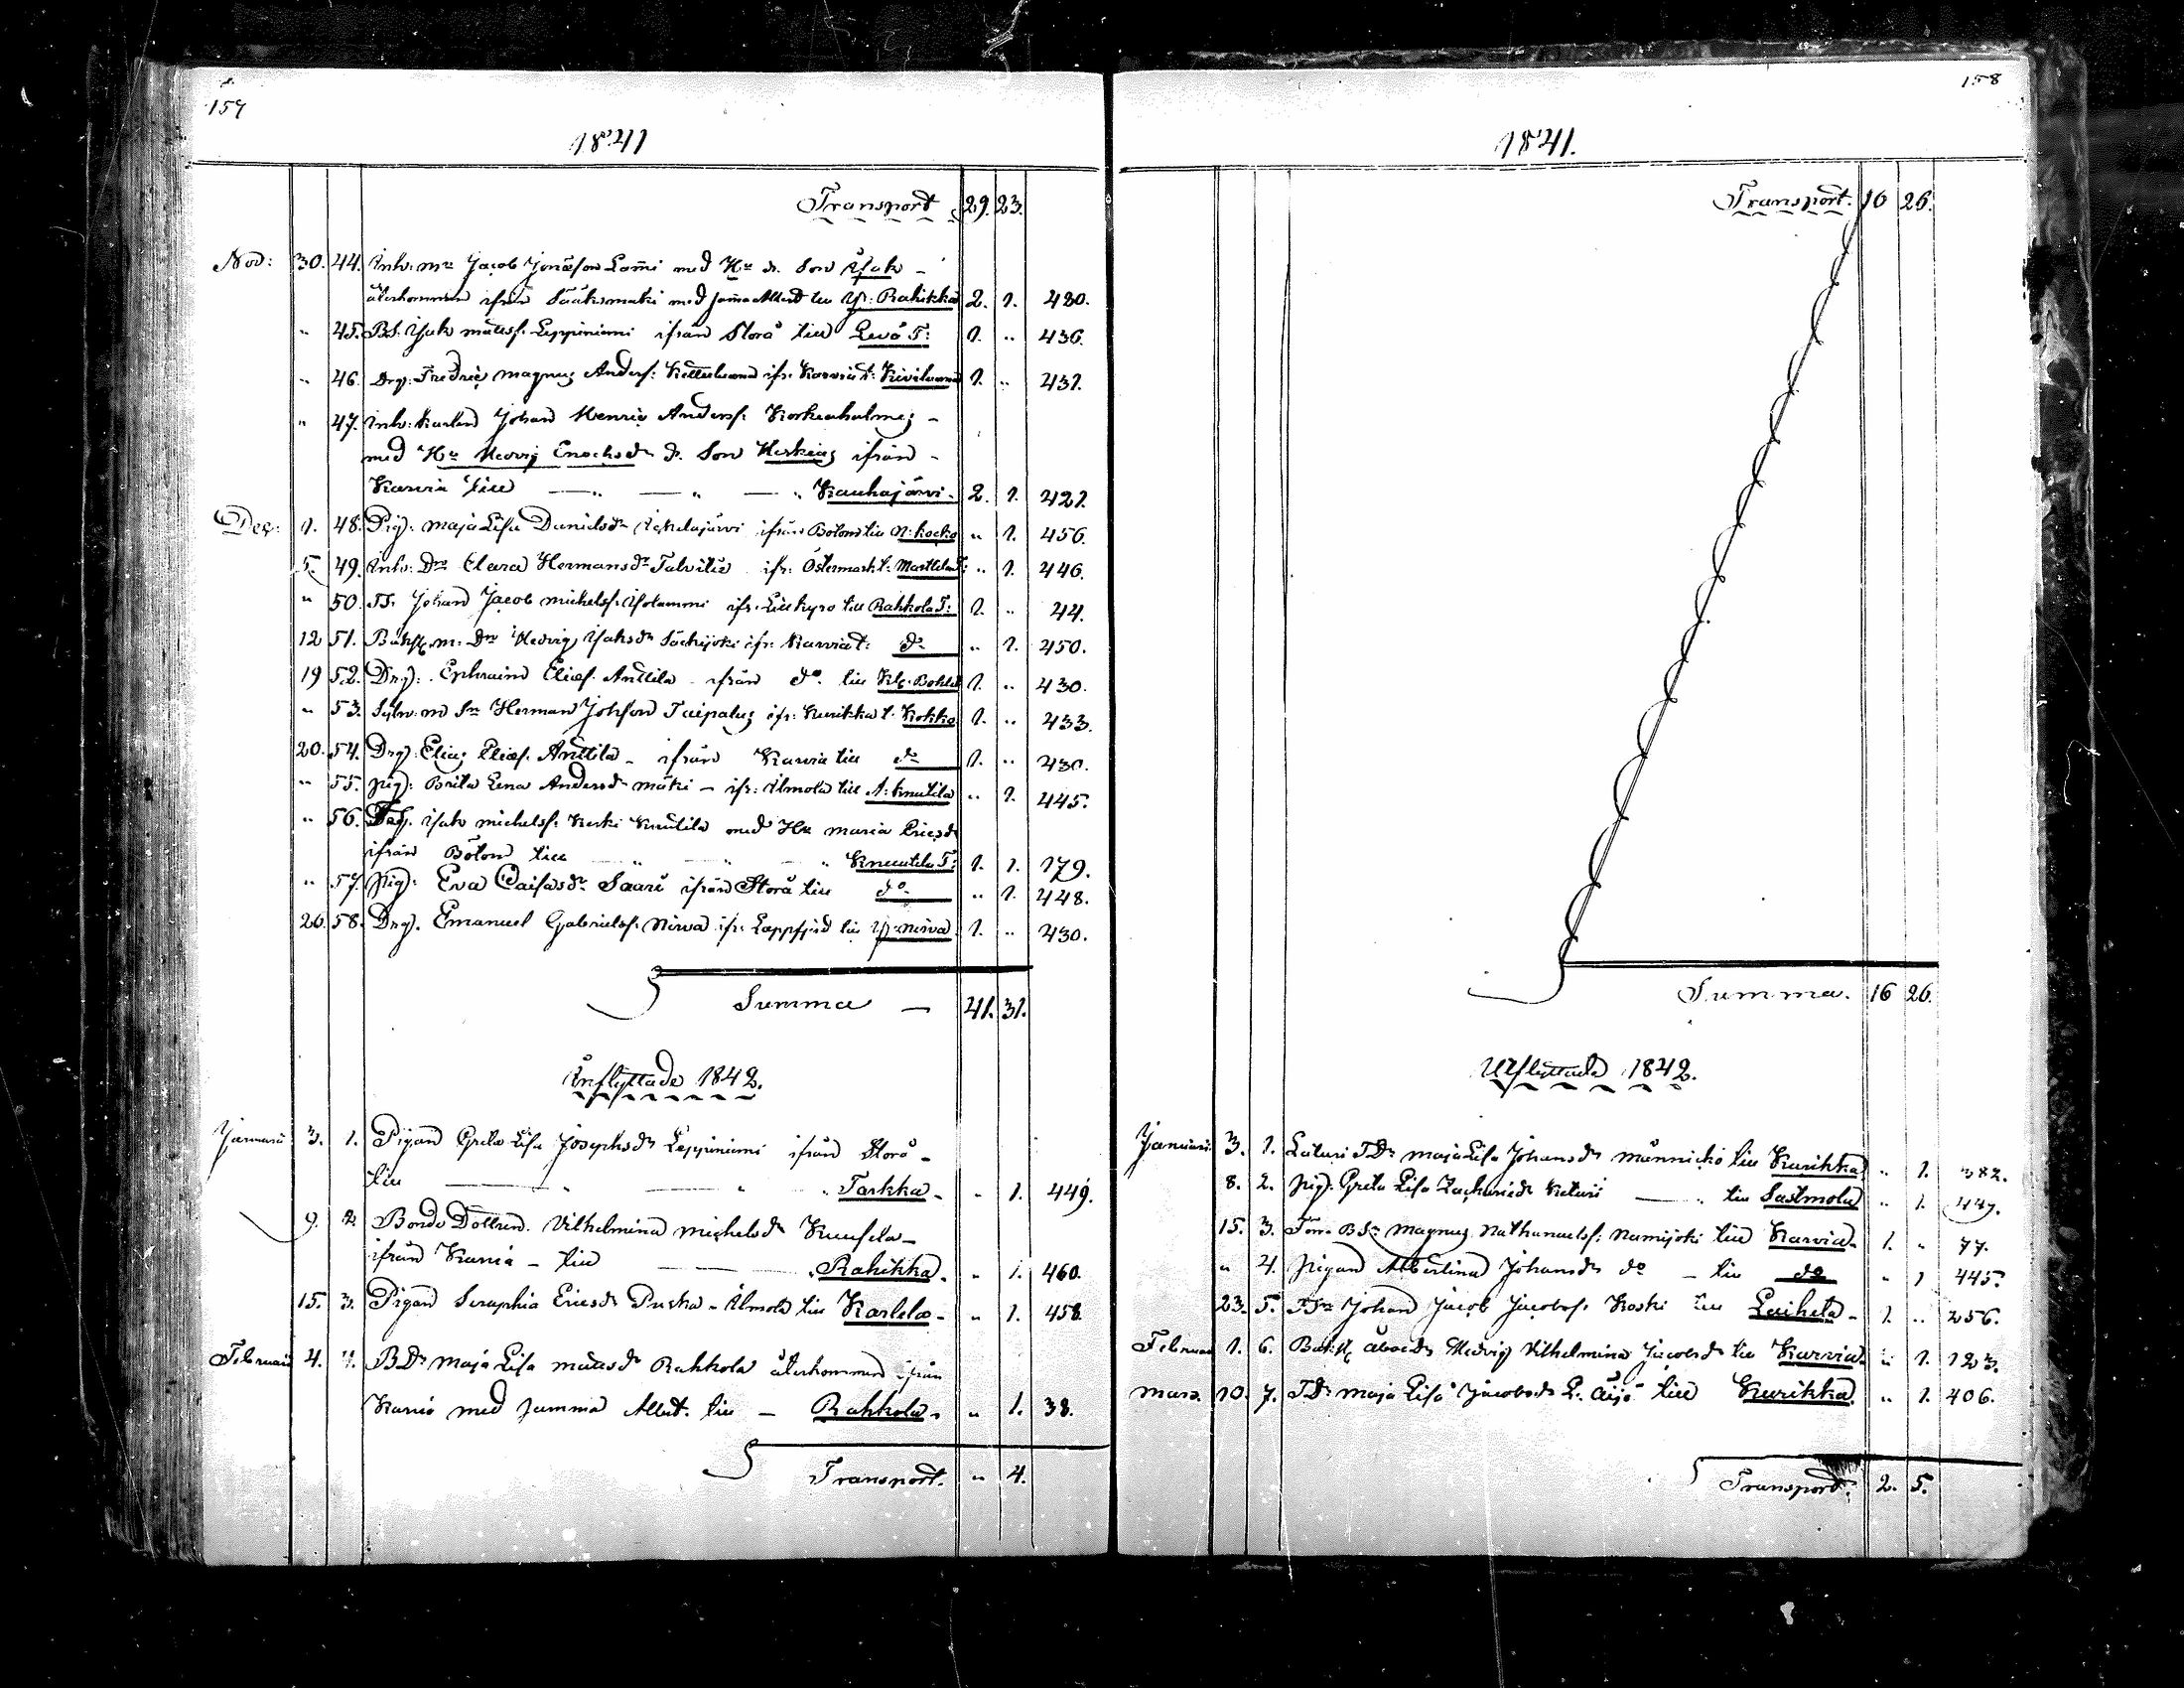 157
1841
Transport 29. 23.
Nov: 30. 44. Inh: mn Jacob Jonæson Lami med Hu o. Son Isak
återkommen ifrån Sääksmäki med samma Attest till Yf: Rahikka 2. 1. 480.
" 45. BS. Isak mattsf. Leppiniemi ifrån Storå till Levä T: 1. " 436.
" 46. Drg: Fredric Magnus Andersf: ifr. Karvia t: 1. " 431.
" 47. Inh: Karlen Johan Henric Andersf: Korkeaholme
med Hu Hedvig Enochsdr o. Son ifrån
Karvia till " " " Kauhajärvi 2. 1. 421.
Dec: 1. 48. Pig: Maja Lisa Danielsdr ifrån Bötom till N: kocko " 1. 456.
5. 49. Inh: Dr Clara Hermansdr Talvitie ifr: Östermark t: Marttila T: " 1. 446.
" 50. TS. Johan Jacob Michelsf: Isolammi ifr. Lillkyro till Rahkola T: 1. " 44.
12 51. m. Dr Hedvig Isaksdr Säckijoki ifr: Karvia t: do " 1. 450.
19 52. Drg: Ephraim Eliæf. Anttila ifrån do. till 1. " 430.
" 53. Sn Herman Johsson Taipalus ifr: Kurikka t. Kokko 1. " 433.
20. 54. Drg: Elias Eliæf. Anttila ifrån Karvia till do 1. " 430.
" 55. Pig: Brita Lena Andersdr Mäki ifr: Ilmola till A: Knutila " 1. 445.
" 56. Isak Michelsf: Keski Knutila med Hu Maria Ericsdr
ifrån Bötom till " " " Knuutila T: 1. 1. 179.
" 57. Pig: Eva Caisasdr Saari ifrån Storå till do. " 1. 448.
26. 58. Drg. Emanuel Gabrielsf. Nirva ifr. Lappfjerd till Yf: Nirva 1. " 430.
Summa 41. 31.
Inflyttade 1842.
Januari 3. 1. Pigan Greta Lisa Josephsdr Leppiniemi ifrån Storå
till " " " Tarkka " 1. 449.
9. 2. Bonde Dottren Vilhelmina Michelsdr
ifrån Karvia till Rahikka " 1. 460.
15. 3. Pigan Seraphia Ericsdr Ilmola till Karlela " 1. 458.
Februari 4. 4. BDr Maja Lisa Mattsdr Rahkola återkommen ifrån
Karvia med samma Attest. till Rahkola " 1. 38.
Transport. " 4.
158
1841.
Transport. 16 26.
Summa. 16 26.
Utflyttade 1842.
Januari 3. 1. Lalturi TDr Maja Lisa Johansdr Männickö till Kurikka " 1. 382.
8. 2. Pig: Greta Lisa Zachriædr Keturi till Sastmola " 1. 447.
15. 3. BSn Magnus Nathanaelsf: Numijoki till Karvia 1. " 77.
" 4. Pigan Albertina Johansdr do till do " 1 445.
23. 5. TSn Johan Jacob Jacobsf. Koski till Laihela 1. " 256.
Februari 1. 6. Hedvig Vilhelmina Jacobsdr till Karvia " 1. 123.
Mars. 10. 7. TDr Maja Lisa Jacobsdr L. Äijö till Kurikka " 1. 406.
Transport. 2. 5.